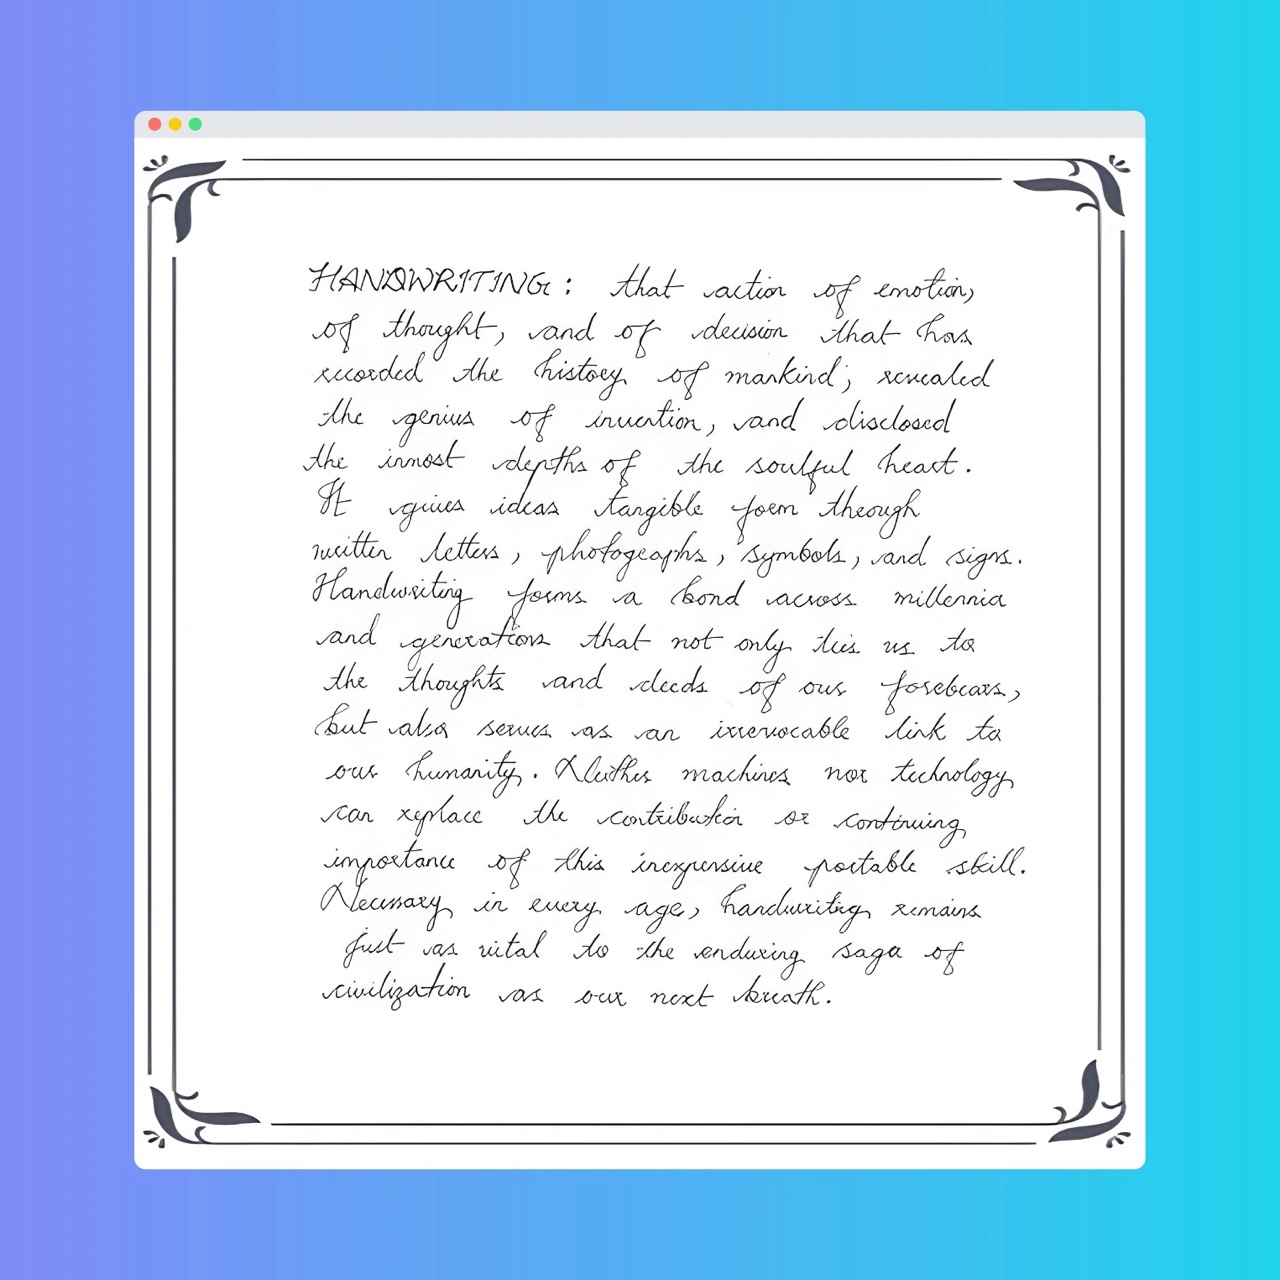 HANDWRITING: that action of emotion,
of thought, and of decision that has
recorded the history of mankind; revealed
the genius of invention, and disclosed
the inmost depths of the soulful heart.
It gives ideas tangible form through
written letters, photographs, symbols, and signs.
Handwriting forms a bond across millennia
and generations that not only ties us to
the thoughts and deeds of our forebears,
but also serves as an irrevocable link to
our humanity. Neither machines nor technology
can replace the contribution or continuing
importance of this inexpensive portable skill.
Necessary in every age, handwriting remains
just as vital to the enduring saga of
civilization as our next breath.